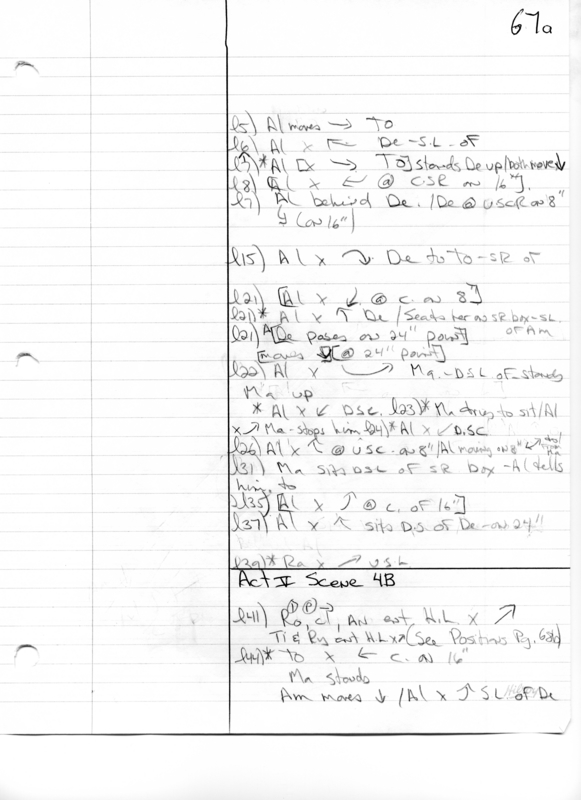 67a
l5) Al moves → To
l6) Al x ↖ De-S.L. of
l7) *Al x → To] stands De up/both moves ↓
l8) [Al x ← @ CSR on 16"].
l7) Al behind De. /De @ USCR on 8"
(on 16")
l15) Al x De to To-SR of
l21) [Al x ↙ @ C. on 8"]
l21)* Al x ↑ De /Seats her on SR box-SL
of Am
l21) [De pases on 24" point]
[moves ↓ [@ 24" point]
l22) Al x Ma.-DSL of-stands
Ma up
* Al x ↙ DSC. l23)* Ma trys to sit/Al
x ↗ Ma-stops him l24)* Al x ↙ DSC
l26) Al x ↖ @ USC. on 8"/Al moving on 8" ↔ to/Ma
l31) Ma sits DSL of SR box-Al tells
him to
l35) [Al x ↗ @ C. of 16"]
l37) Al x ↖ sits D.S. of De-on 24"
l39)* Ra x ↗ U.S.L.
Act V Scene 4B
l41) Ro, Cl, An ent. H.L. x ↗
Ti & Ry ent H.L x↗ (See Positions Pg. 68b)
l44)* To x ← C. on 16"
Ma stands
Am moves ↓ /Al x ↗ SL of De